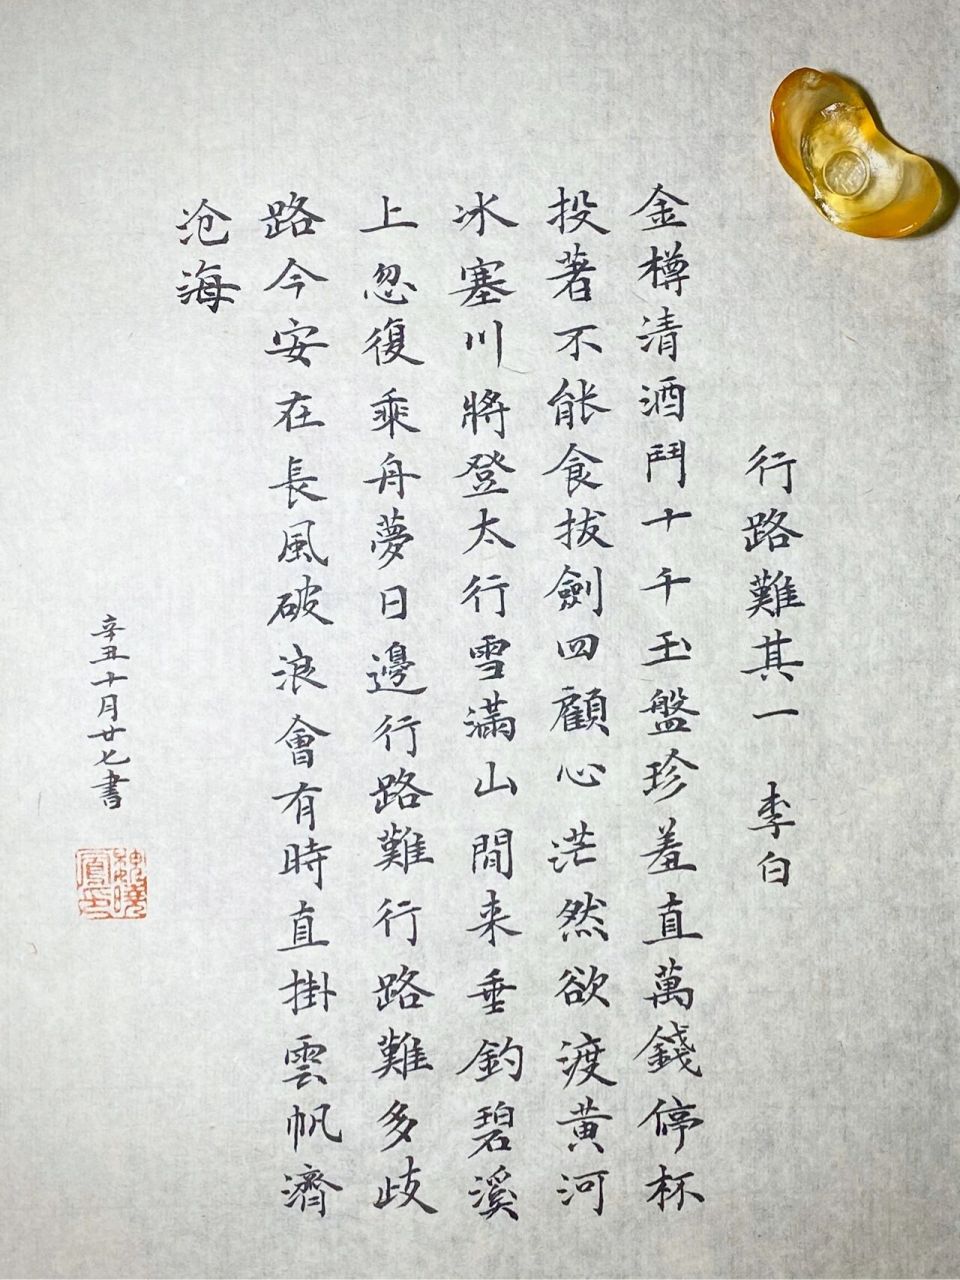 行路難其一 李白
金樽清酒鬥十千玉盤珍羞直萬錢停杯
投著不能食拔劍四顧心茫然欲渡黃河
冰塞川將登太行雪滿山閒来垂釣碧溪
上忽復乘舟夢日邊行路難行路難多歧
路今安在長風破浪會有時直掛雲帆濟
沧海
辛丑十月廿七書